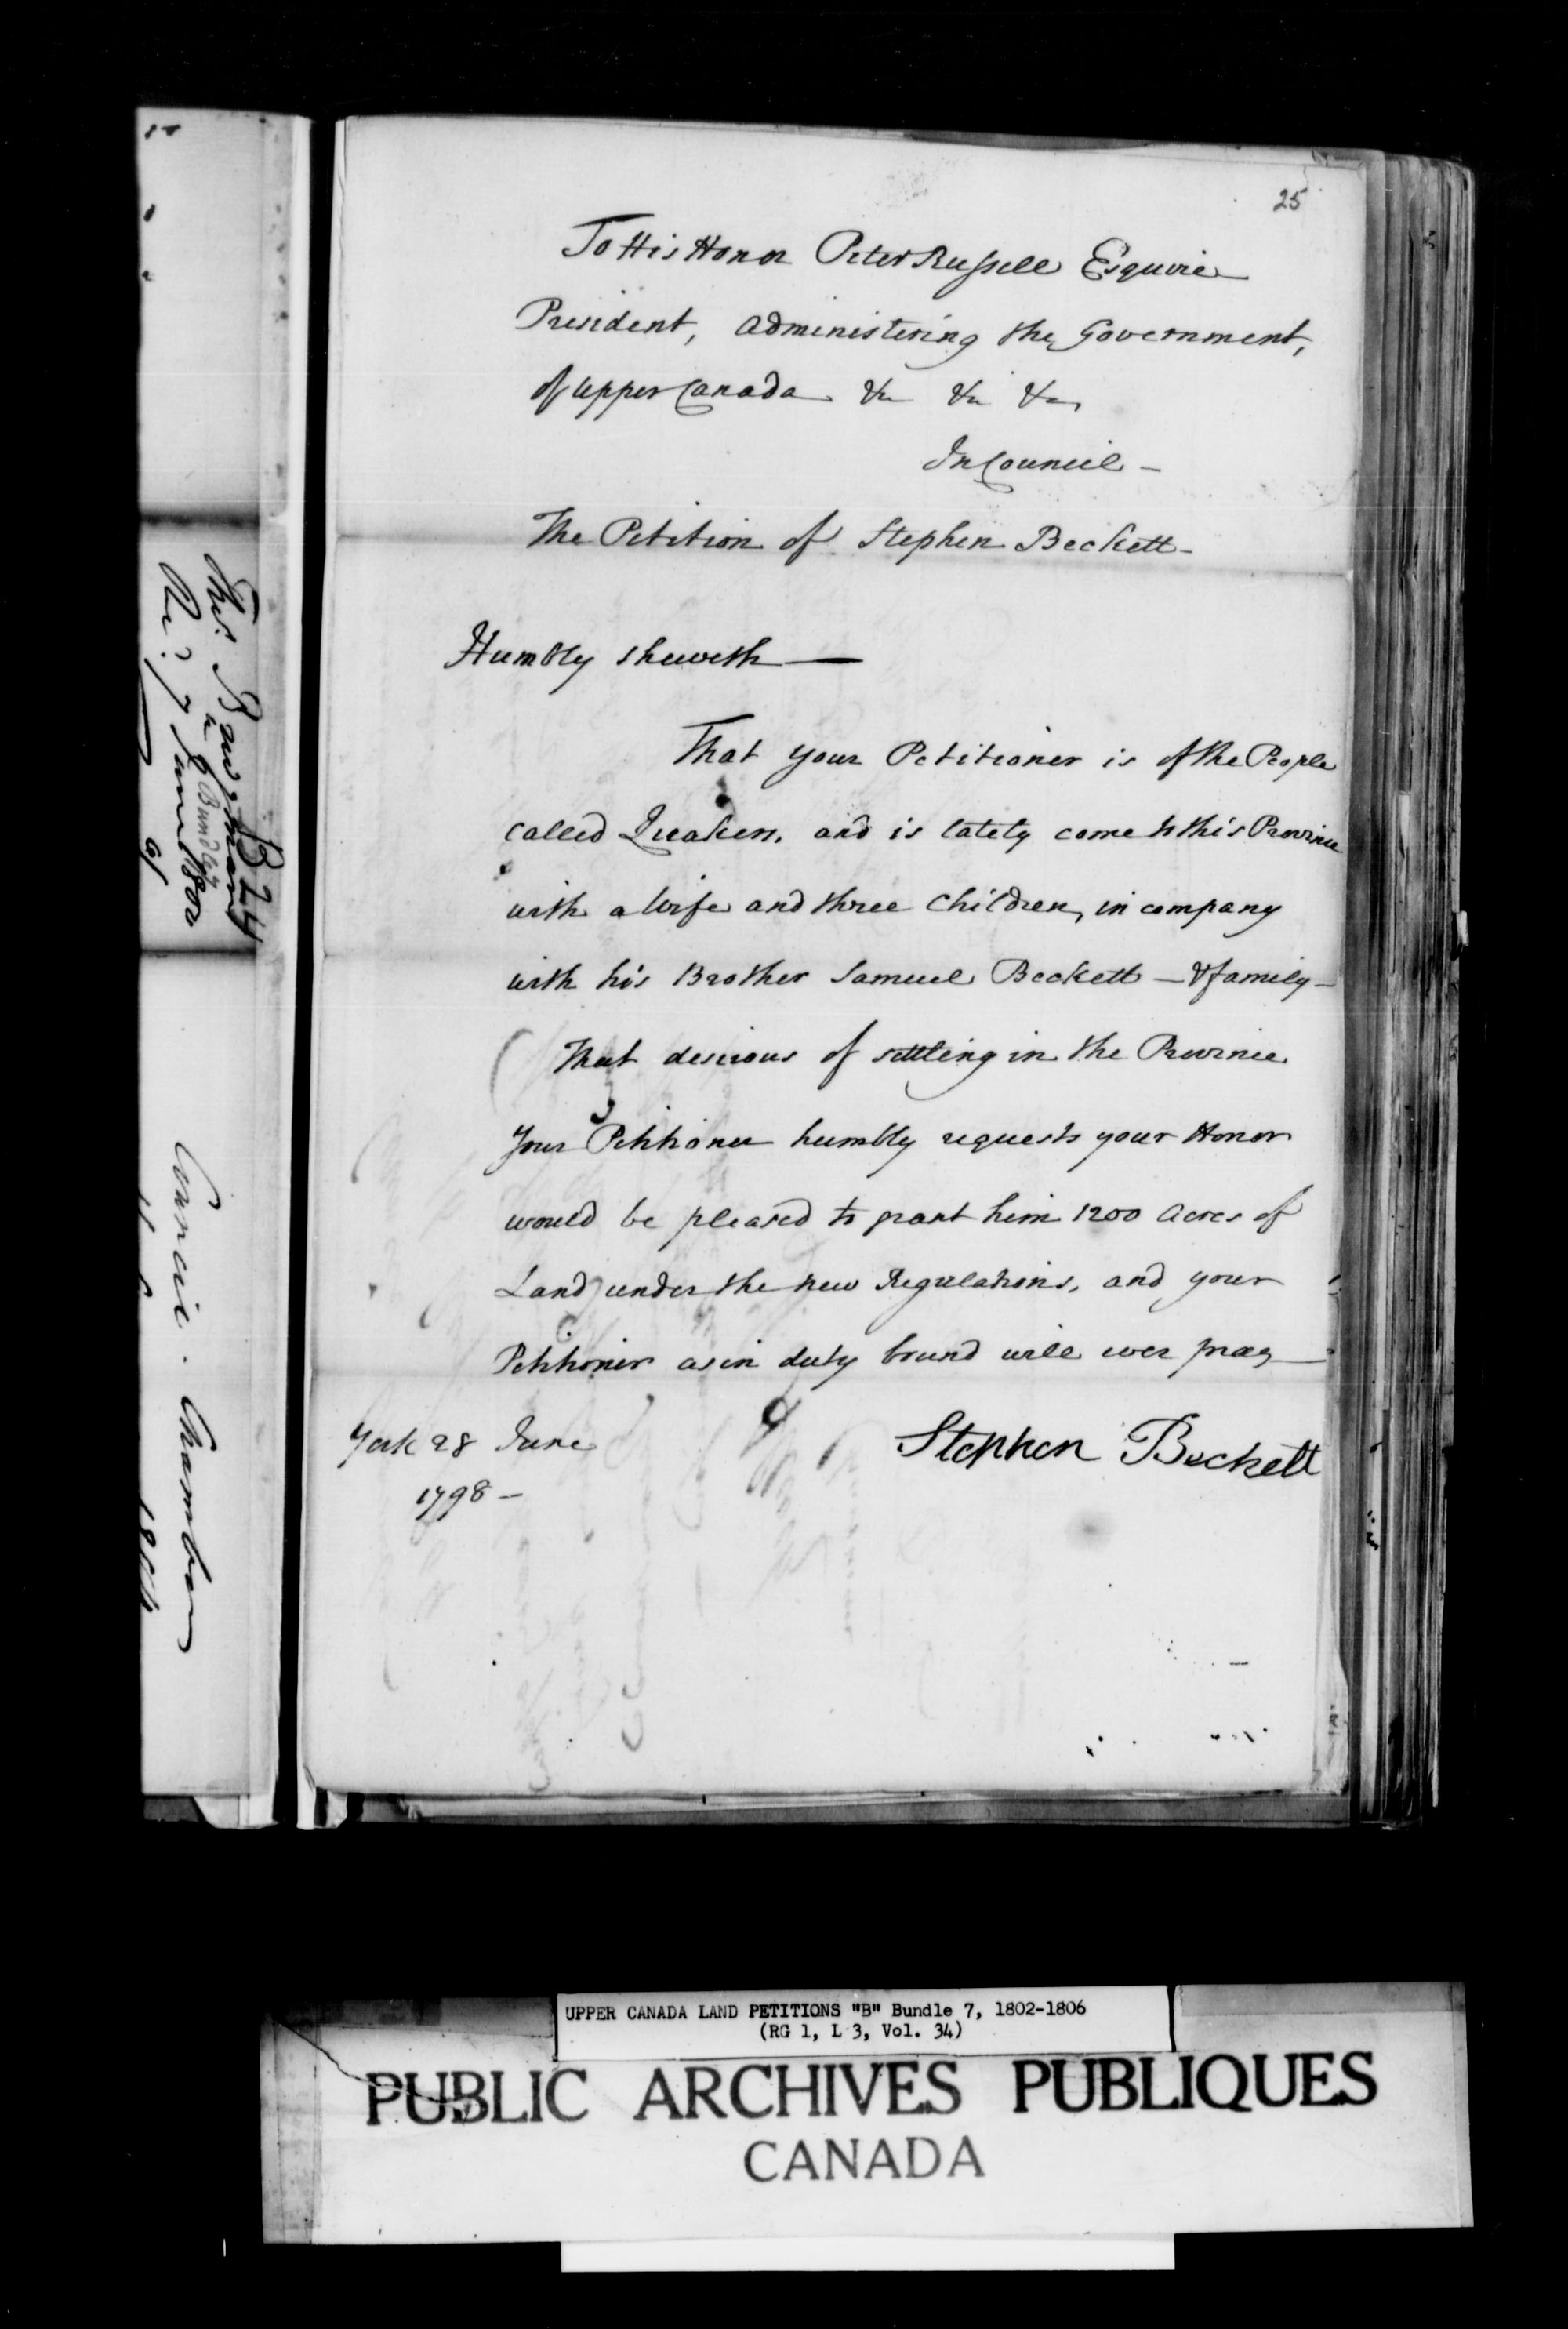 25
To His Honor Peter Russell Esquire
President, administering the Government,
of Upper Canada &c &c &c,
In Council —
The Petition of Stephen Beckett —
Humbly sheweth —
That your Petitioner is of the People
called Quakers, and is lately come to this Province
with a Wife and three Children, in company
with his Brother Samuel Beckett — & family —
That desirous of settling in the Province
Your Petitioner humbly requests your Honor
would be pleased to grant him 1200 Acres of
Land under the new Regulations, and your
Petitioner as in duty bound will ever pray —
Stephen Beckett
York 28 June
1798 —
B 24
Bundle 7
June 1802
Council Chamber
UPPER CANADA LAND PETITIONS "B" Bundle 7, 1802-1806
(RG 1, L 3, Vol. 34)
PUBLIC ARCHIVES PUBLIQUES
CANADA